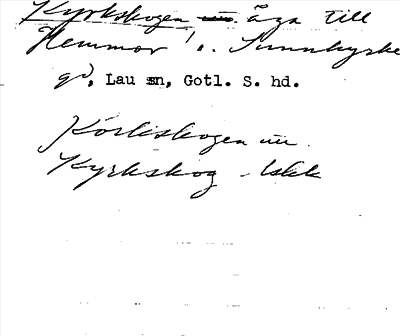 Kyrkskogen äga till
Hemmor o. Sunnkyrke
gd, Lau sn, Gotl. S. hd.
Körkskogen un.
Kyrkskog - lskk